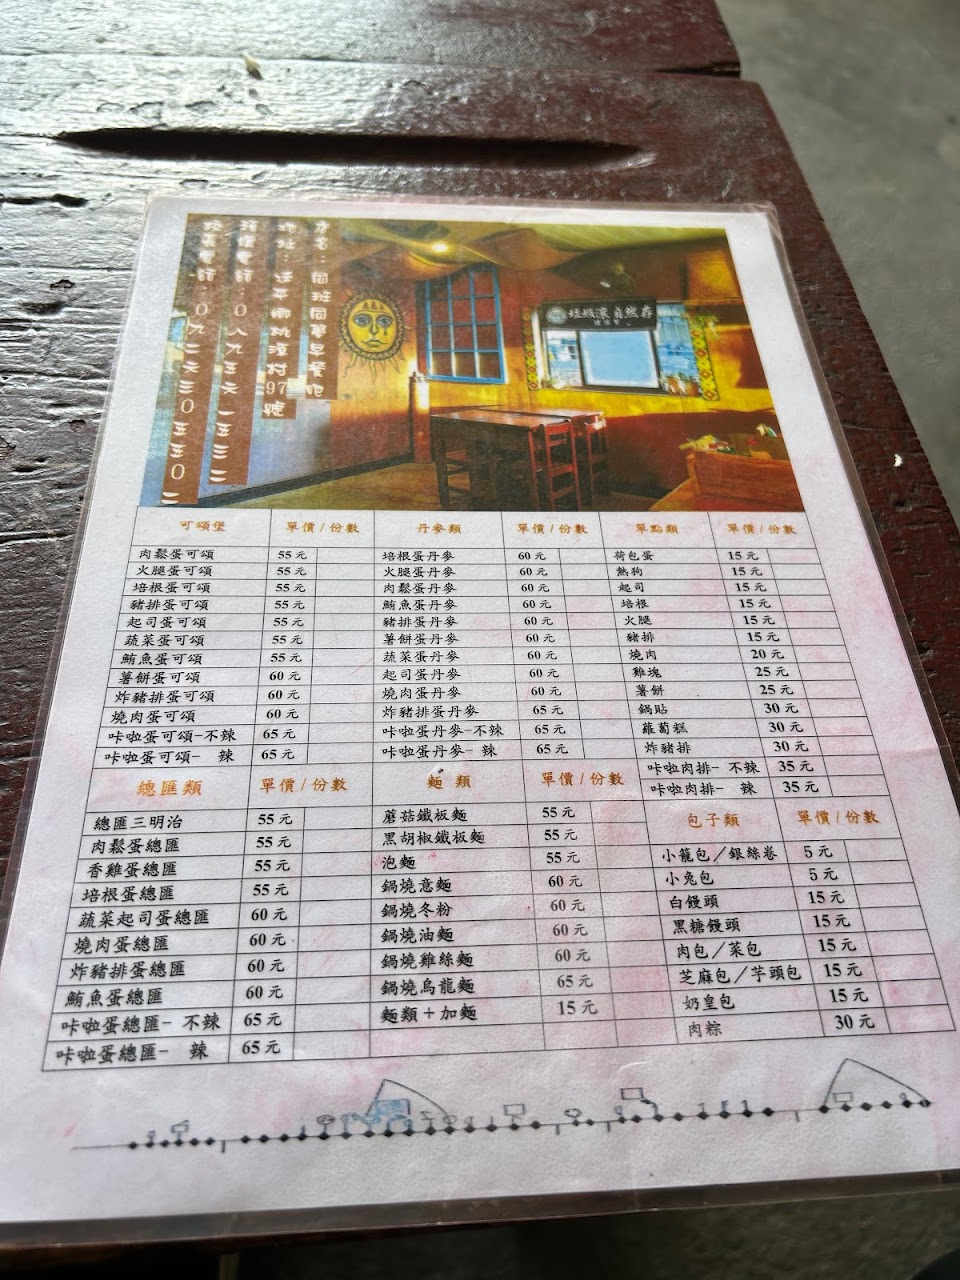 店名：同班同學早餐吧
地址：延平鄉桃源村97號
電話：0八九五六一五三二
電話：0九二六三0五五0二
垃圾滾自然存
可頌堡 單價/份數
肉鬆蛋可頌 55元
火腿蛋可頌 55元
培根蛋可頌 55元
豬排蛋可頌 55元
起司蛋可頌 55元
蔬菜蛋可頌 55元
鮪魚蛋可頌 55元
薯餅蛋可頌 60元
炸豬排蛋可頌 60元
燒肉蛋可頌 60元
咔啦蛋可頌-不辣 65元
咔啦蛋可頌- 辣 65元
總匯類 單價/份數
總匯三明治 55元
肉鬆蛋總匯 55元
香雞蛋總匯 55元
培根蛋總匯 55元
蔬菜起司蛋總匯 60元
燒肉蛋總匯 60元
炸豬排蛋總匯 60元
鮪魚蛋總匯 60元
咔啦蛋總匯- 不辣 65元
咔啦蛋總匯- 辣 65元
丹麥類 單價/份數
培根蛋丹麥 60元
火腿蛋丹麥 60元
肉鬆蛋丹麥 60元
鮪魚蛋丹麥 60元
豬排蛋丹麥 60元
薯餅蛋丹麥 60元
蔬菜蛋丹麥 60元
起司蛋丹麥 60元
燒肉蛋丹麥 60元
炸豬排蛋丹麥 65元
咔啦蛋丹麥-不辣 65元
咔啦蛋丹麥- 辣 65元
麵類 單價/份數
蘑菇鐵板麵 55元
黑胡椒鐵板麵 55元
泡麵 55元
鍋燒意麵 60元
鍋燒冬粉 60元
鍋燒油麵 60元
鍋燒雞絲麵 60元
鍋燒烏龍麵 65元
麵類＋加麵 15元
單點類 單價/份數
荷包蛋 15元
熱狗 15元
起司 15元
培根 15元
火腿 15元
豬排 15元
燒肉 20元
雞塊 25元
薯餅 25元
鍋貼 30元
蘿蔔糕 30元
炸豬排 30元
咔啦肉排- 不辣 35元
咔啦肉排- 辣 35元
包子類 單價/份數
小籠包／銀絲卷 5元
小兔包 5元
白饅頭 15元
黑糖饅頭 15元
肉包／菜包 15元
芝麻包／芋頭包 15元
奶皇包 15元
肉粽 30元